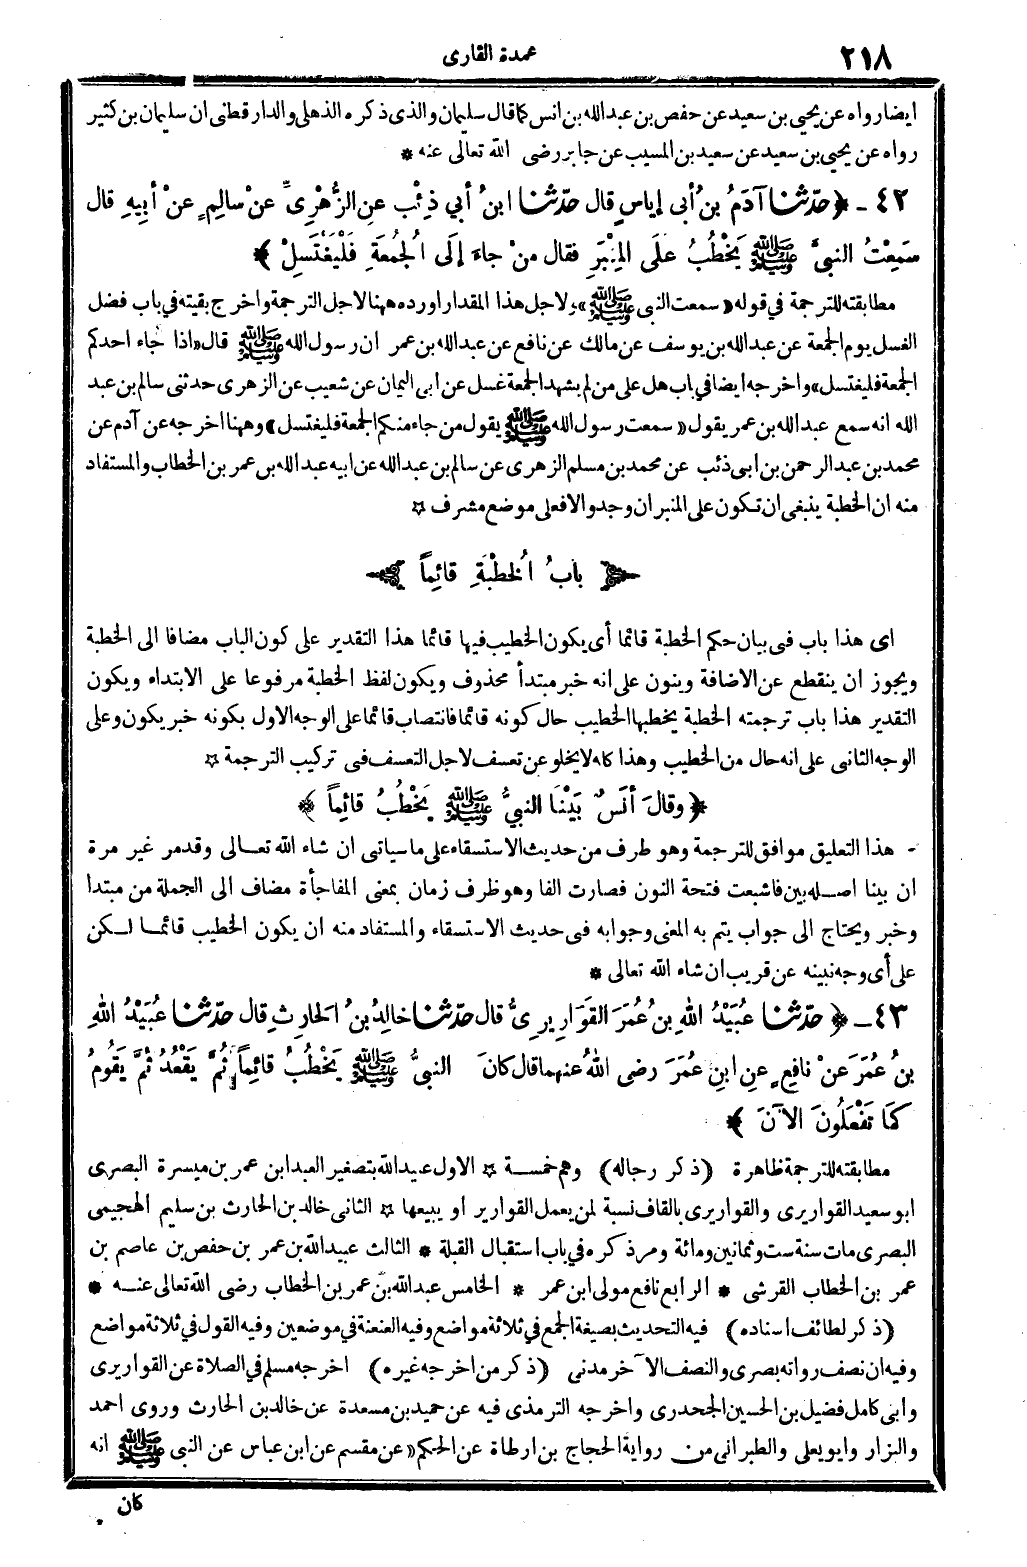 ٢١٨
عمدة القارى
ايضا رواه عن يحيى بن سعيد عن حفص بن عبدالله بن انس كما قال سليمان والذى ذكره الذهلى والدارقطنى ان سليمان بن كثير
رواه عن يحيى بن سعيد عن سعيد بن المسيب عن جابر رضى الله تعالى عنه *
٤٢ - ﴿ حدّثنا آدَمُ بنُ أبى إياسٍ قال حدّثنا ابنُ أبي ذِئْبٍ عنِ الزُّهْرِىِّ عنْ سالِمٍ عنْ أبِيهِ قال
سَمِعْتُ النبىَّ ﷺ يَخْطُبُ علَى المِنْبَرِ فقال منْ جاءَ إلَى الْجُمعَةِ فَلْيَغْتَسِلْ ﴾
مطابقته للترجمة فى قوله «سمعت النبى ﷺ» ولاجل هذا المقدار اورده ههنا لاجل الترجمة واخرج بقيته فى باب فضل
الغسل يوم الجمعة عن عبدالله بن يوسف عن مالك عن نافع عن عبدالله بن عمر ان رسول الله ﷺ قال «اذا جاء احدكم
الجمعة فليغتسل» واخرجه ايضا فى باب هل على من لم يشهد الجمعة غسل عن ابى اليمان عن شعيب عن الزهرى حدثنى سالم بن عبد
الله انه سمع عبدالله بن عمر يقول «سمعت رسول الله ﷺ يقول من جاء منكم الجمعة فليغتسل» وههنا اخرجه عن آدم عن
محمد بن عبد الرحمن بن ابى ذئب عن محمد بن مسلم الزهرى عن سالم بن عبدالله عن ابيه عبدالله بن عمر بن الخطاب والمستفاد
منه ان الخطبة ينبغى ان تكون على المنبر ان وجد والا فعلى موضع مشرف *
بابُ الْخطْبَةِ قائِماً
اى هذا باب فى بيان حكم الخطبة قائما أى يكون الخطيب فيها قائما هذا التقدير على كون الباب مضافا الى الخطبة
ويجوز ان ينقطع عن الاضافة وينون على انه خبر مبتدأ محذوف ويكون لفظ الخطبة مرفوعا على الابتداء ويكون
التقدير هذا باب ترجمته الخطبة يخطبها الخطيب حال كونه قائما فانتصاب قائما على الوجه الاول بكونه خبر يكون وعلى
الوجه الثانى على انه حال من الخطيب وهذا كله لا يخلو عن تعسف لاجل التعسف فى تركيب الترجمة *
﴿ وقالَ أنَسٌ بَيْنَا النبيُّ ﷺ يَخْطُبُ قائِماً ﴾
هذا التعليق موافق للترجمة وهو طرف من حديث الاستسقاء على ما سياتى ان شاء الله تعالى وقد مر غير مرة
ان بينا اصله بين فاشبعت فتحة النون فصارت الفا وهو ظرف زمان بمعنى المفاجأة مضاف الى الجملة من مبتدا
وخبر ويحتاج الى جواب يتم به المعنى وجوابه فى حديث الاستسقاء والمستفاد منه ان يكون الخطيب قائما لكن
على أى وجه نبينه عن قريب ان شاء الله تعالى *
٤٣ - ﴿ حدّثنا عُبَيْدُ اللهِ بنُ عُمَرَ القَوَارِيرِىُّ قال حدّثنا خالِدُ بنُ الْحَارِثِ قال حدّثنا عُبَيْدُ اللهِ
بنُ عُمَرَ عَنْ نافِعٍ عنِ ابنِ عُمَرَ رضى اللهُ عنهما قال كانَ النبىُّ ﷺ يَخْطُبُ قائِماً ثُمَّ يَقْعُدُ ثُمَّ يَقُومُ
كَمَا تَفْعَلُونَ الآنَ ﴾
مطابقته للترجمة ظاهرة (ذكر رجاله) وهم خمسة * الاول عبيدالله بتصغير العبد ابن عمر بن ميسرة البصرى
ابو سعيد القواريرى والقواريرى بالقاف نسبة لمن يعمل القوارير او يبيعها * الثانى خالد بن الحارث بن سليم الهجيمى
البصرى مات سنة ست وثمانين ومائة ومر ذكره فى باب استقبال القبلة * الثالث عبيدالله بن عمر بن حفص بن عاصم بن
عمر بن الخطاب القرشى * الرابع نافع مولى ابن عمر * الخامس عبدالله بن عمر بن الخطاب رضى الله تعالى عنه *
(ذكر لطائف اسناده) فيه التحديث بصيغة الجمع فى ثلاثة مواضع وفيه العنعنة فى موضعين وفيه القول فى ثلاثة مواضع
وفيه ان نصف رواته بصرى والنصف الآخر مدنى (ذكر من اخرجه غيره) اخرجه مسلم فى الصلاة عن القواريرى
وابى كامل فضيل بن الحسين الجحدرى واخرجه الترمذى فيه عن حميد بن مسعدة عن خالد بن الحارث وروى احمد
والبزار وابو يعلى والطبرانى من رواية الحجاج بن ارطاة عن الحكم «عن مقسم عن ابن عباس عن النبى ﷺ انه
كان